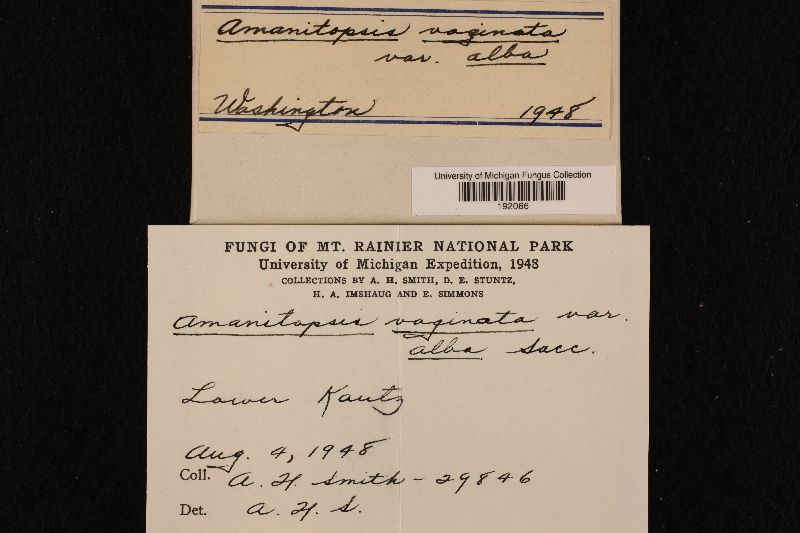 Amanitopsis vaginata
var. alba
Washington 1948
University of Michigan Fungus Collection
192066
FUNGI OF MT. RAINIER NATIONAL PARK
University of Michigan Expedition, 1948
COLLECTIONS BY A. H. SMITH, D. E. STUNTZ,
H. A. IMSHAUG AND E. SIMMONS
Amanitopsis vaginata var.
alba Sacc.
Lower Kautz
Aug. 4, 1948
Coll. A. H. Smith - 29846
Det. A. H. S.